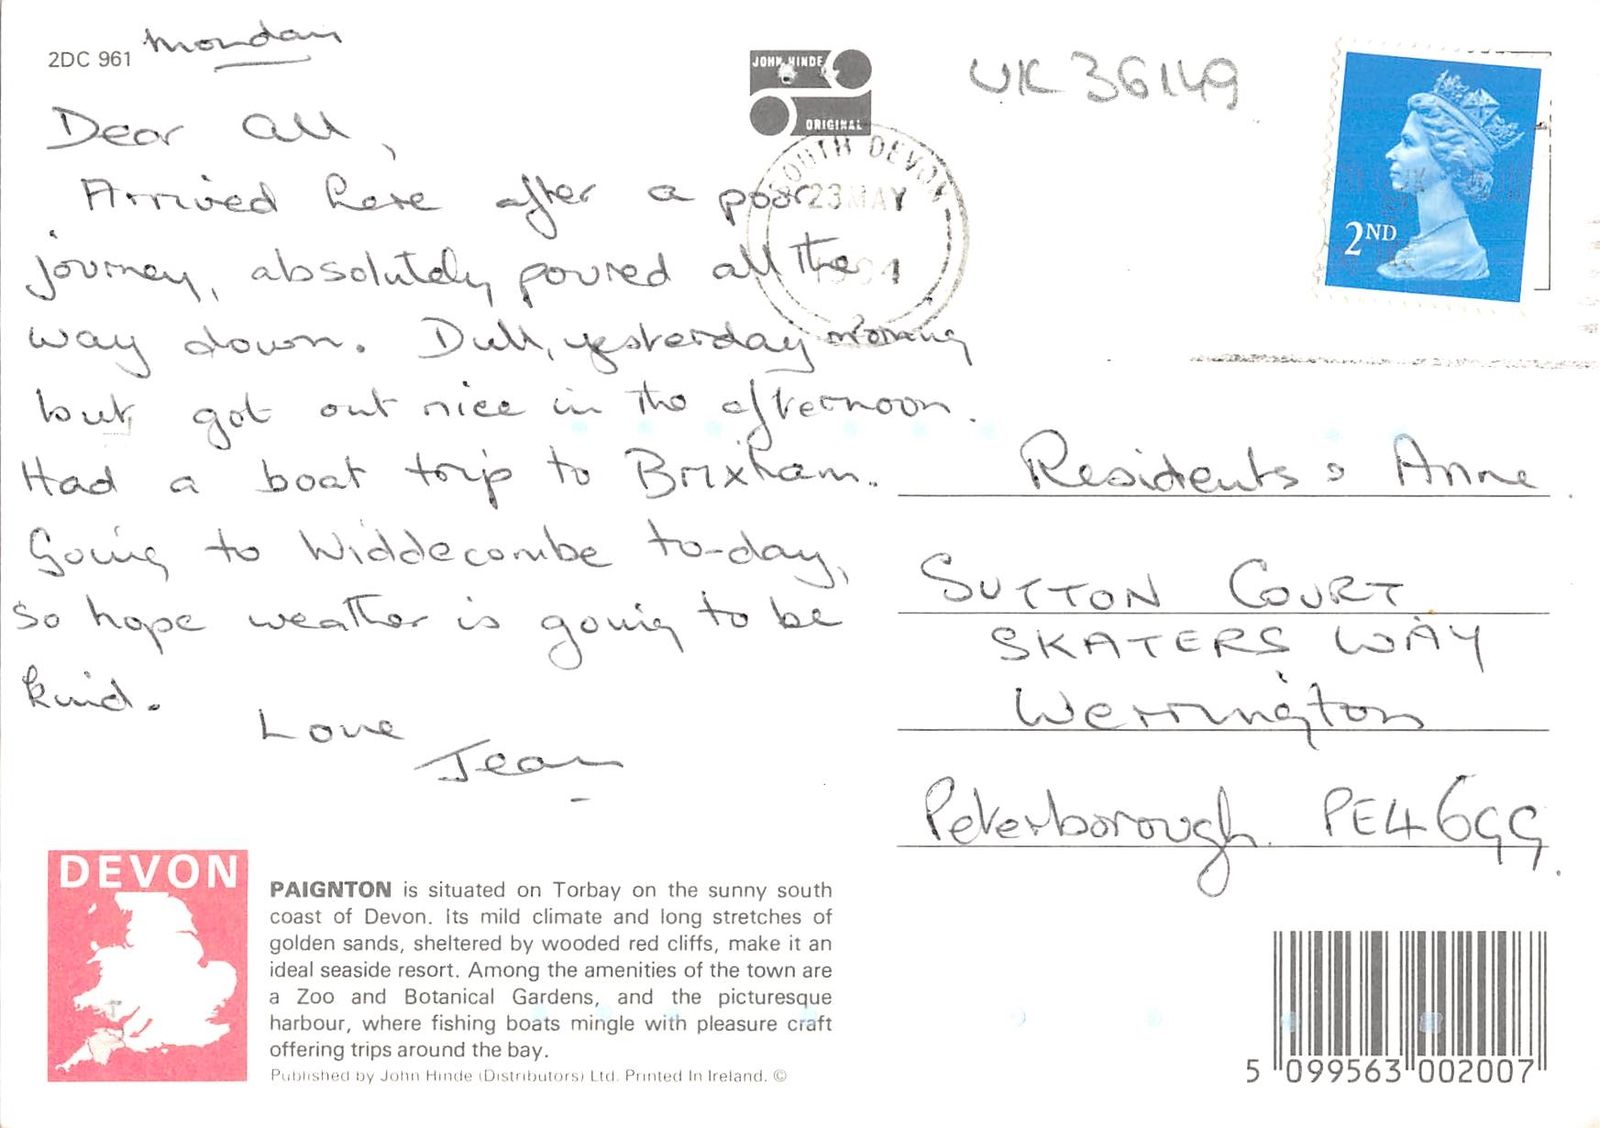 2DC 961
Monday
Dear All,
Arrived here after a poor
journey, absolutely poured all the
way down. Dull, yesterday morning
but, got out nice in the afternoon.
Had a boat trip to Brixham.
Going to Widdecombe to-day,
so hope weather is going to be
kind.
Love
Jean
JOHN HINDE
ORIGINAL
UK 36149
SOUTH DEVON
23 MAY
2ND
Residents & Anne
SUTTON COURT
SKATERS WAY
Werrington
Peterborough PE4 6GG.
DEVON
PAIGNTON is situated on Torbay on the sunny south
coast of Devon. Its mild climate and long stretches of
golden sands, sheltered by wooded red cliffs, make it an
ideal seaside resort. Among the amenities of the town are
a Zoo and Botanical Gardens, and the picturesque
harbour, where fishing boats mingle with pleasure craft
offering trips around the bay.
Published by John Hinde (Distributors) Ltd. Printed In Ireland. ©
5 099563 002007